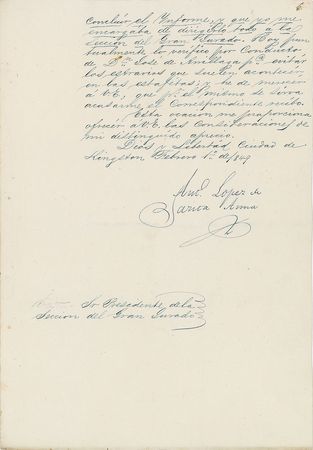 6
concluir el Informe, y que yo me
encargaba de dirigirlo todo a la
Seccion del Gran Jurado. Hoy pun
tualmente lo verifico por conducto
de Dn. José de Arrillaga pa. evitar
los estravios que suelen acontecer
en las estafetas, y he de merecer
a V.E. que pr. el mismo se sirva
acusarme el correspondiente recibo.
Esta ocacion me proporciona
ofrecer a V.E. las consideraciones de
mi distinguido aprecio.
Dios y Libertad Ciudad de
Kingston Febrero 1o. de 1849
Anto. Lopez de
Santa Anna
Sr Presidente de la
Seccion del Gran Jurado